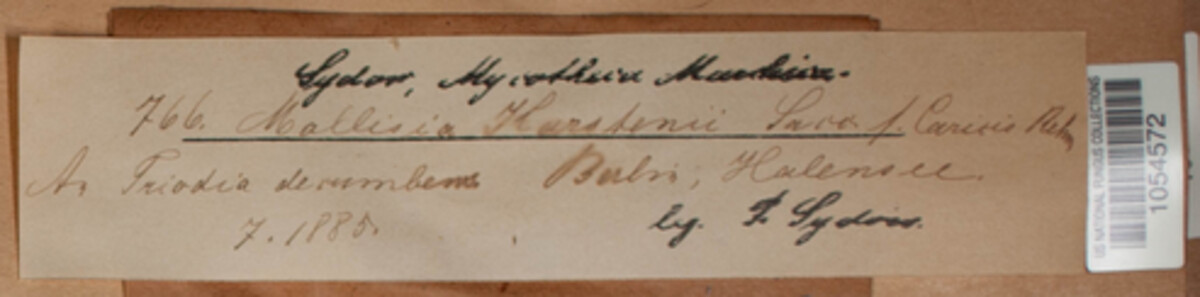 Sydow, Mycotheca Marchica.
766. Mollisia Karstenii Sacc. f. Caricis Rehm
An Triodia decumbens Berlin, Halensee.
7. 1885.
leg. P. Sydow.
US NATIONAL FUNGUS COLLECTIONS
1054572